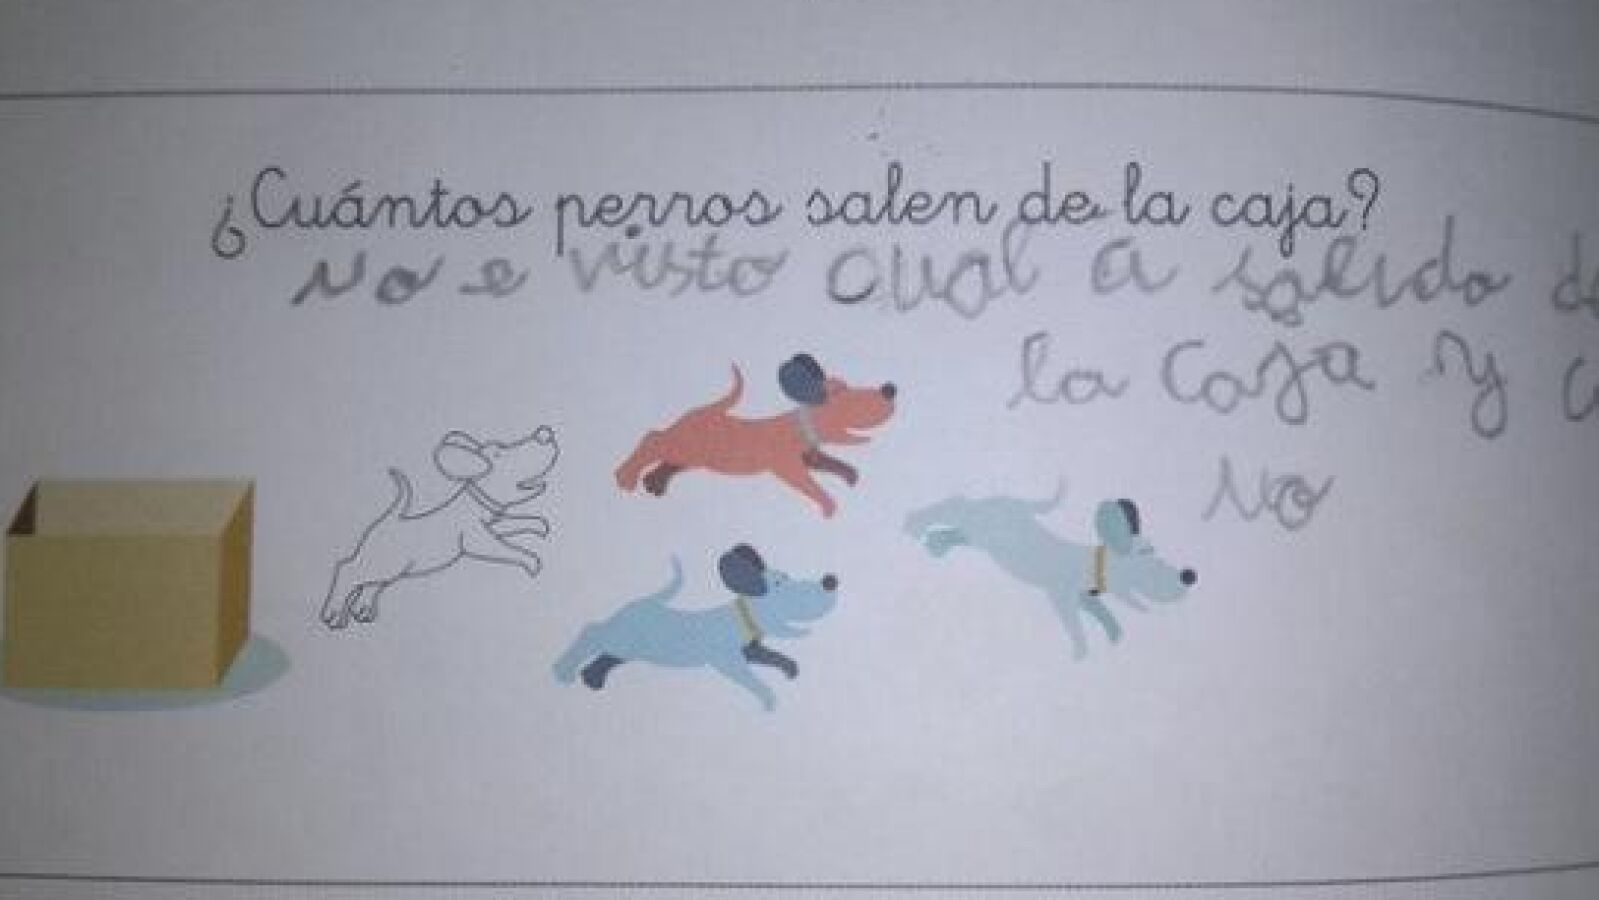 ¿Cuántos perros salen de la caja?
No e visto cual a salido de
la caja y
No